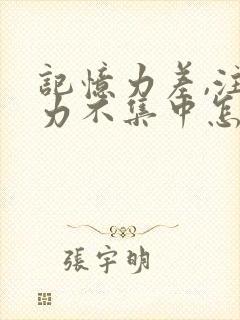 記憶力差,注
力不集中怎
張宇明